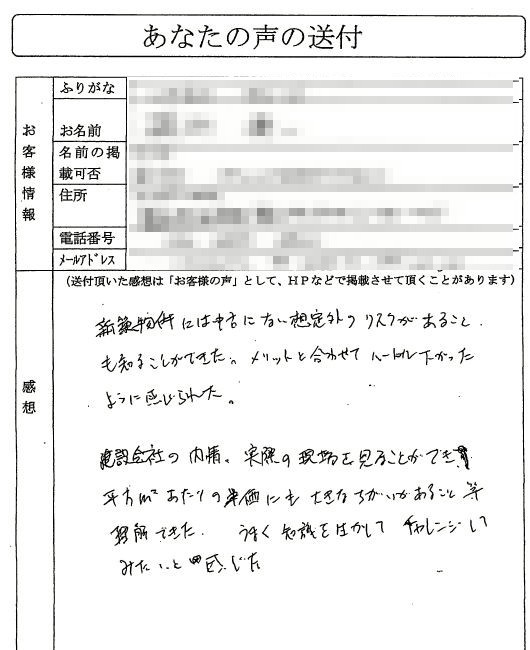 あなたの声の送付
ふりがな
お客様情報
お名前
名前の掲
載可否
住所
電話番号
ﾒｰﾙｱﾄﾞﾚｽ
(送付頂いた感想は「お客様の声」として、HPなどで掲載させて頂くことがあります)
感想
新築物件には中古にない想定外のリスクがあること
も知ることができた。メリットと合わせてハードル下がった
ように感じられた。
建設会社の内情、実際の現場を見ることができ
平方m²あたりの単価にも大きなちがいがあること等
理解できた. うまく知識を生かしてチャレンジして
みたいと感じた